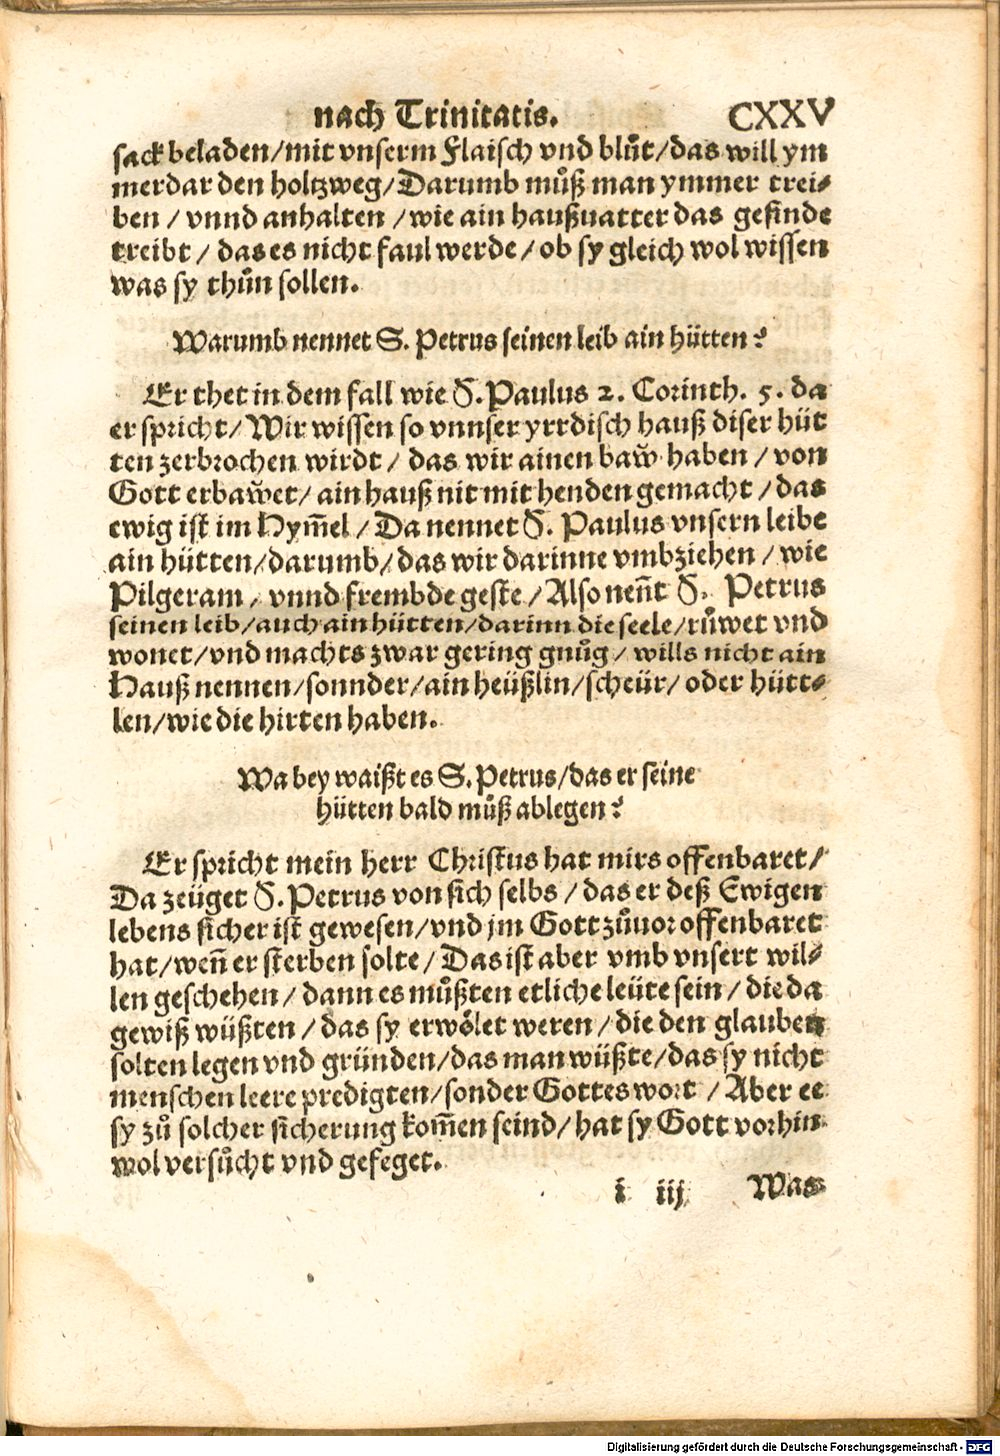 nach Trinitatis. CXXV
sack beladen/mit vnserm Flaisch vnd blůt/das will ym
merdar den holtzweg/Darumb můß man ymmer trei-
ben / vnnd anhalten /wie ain haußuatter das gesinde
treibt / das es nicht faul werde / ob sy gleich wol wissen
was sy thůn sollen.
Warumb nennet S. Petrus seinen leib ain hütten?
Er thet in dem fall wie S. Paulus 2. Corinth. 5. da
er spricht/ Wir wissen so vnnser yrrdisch hauß diser hüt
ten zerbrochen wirdt / das wir ainen baw̃ haben / von
Gott erbaw̃et/ ain hauß nit mit henden gemacht /das
ewig ist im Hym̃el / Da nennet S. Paulus vnsern leibe
ain hütten/darumb/das wir darinne vmbziehen / wie
Pilgeram / vnnd frembde geste /Also neñt S. Petrus
seinen leib/auch ain hütten/darinn die seele/růwet vnd
wonet/vnd machts zwar gering gnůg/ wills nicht ain
Hauß nennen/sonnder/ain heüßlin/scheür/ oder hütt-
len/wie die hirten haben.
Wa bey waißt es S. Petrus/das er seine
hütten bald můß ablegen?
Er spricht mein herr Christus hat mirs offenbaret/
Da zeüget S. Petrus von sich selbs /das er deß Ewigen
lebens sicher ist gewesen/vnd jm Gott zůuor offenbaret
hat/weñ er sterben solte/Das ist aber vmb vnsert wil-
len geschehen / dann es můßten etliche leüte sein / die da
gewiß wüßten / das sy erwölet weren / die den glauben
solten legen vnd gründen/das man wüßte/das sy nicht
menschen leere predigten/sonder Gottes wort / Aber ee
sy zů solcher sicherung kom̃en seind/hat sy Gott vorhin
wol versůcht vnd gefeget.
i iij Was
Digitalisierung gefördert durch die Deutsche Forschungsgemeinschaft - DFG